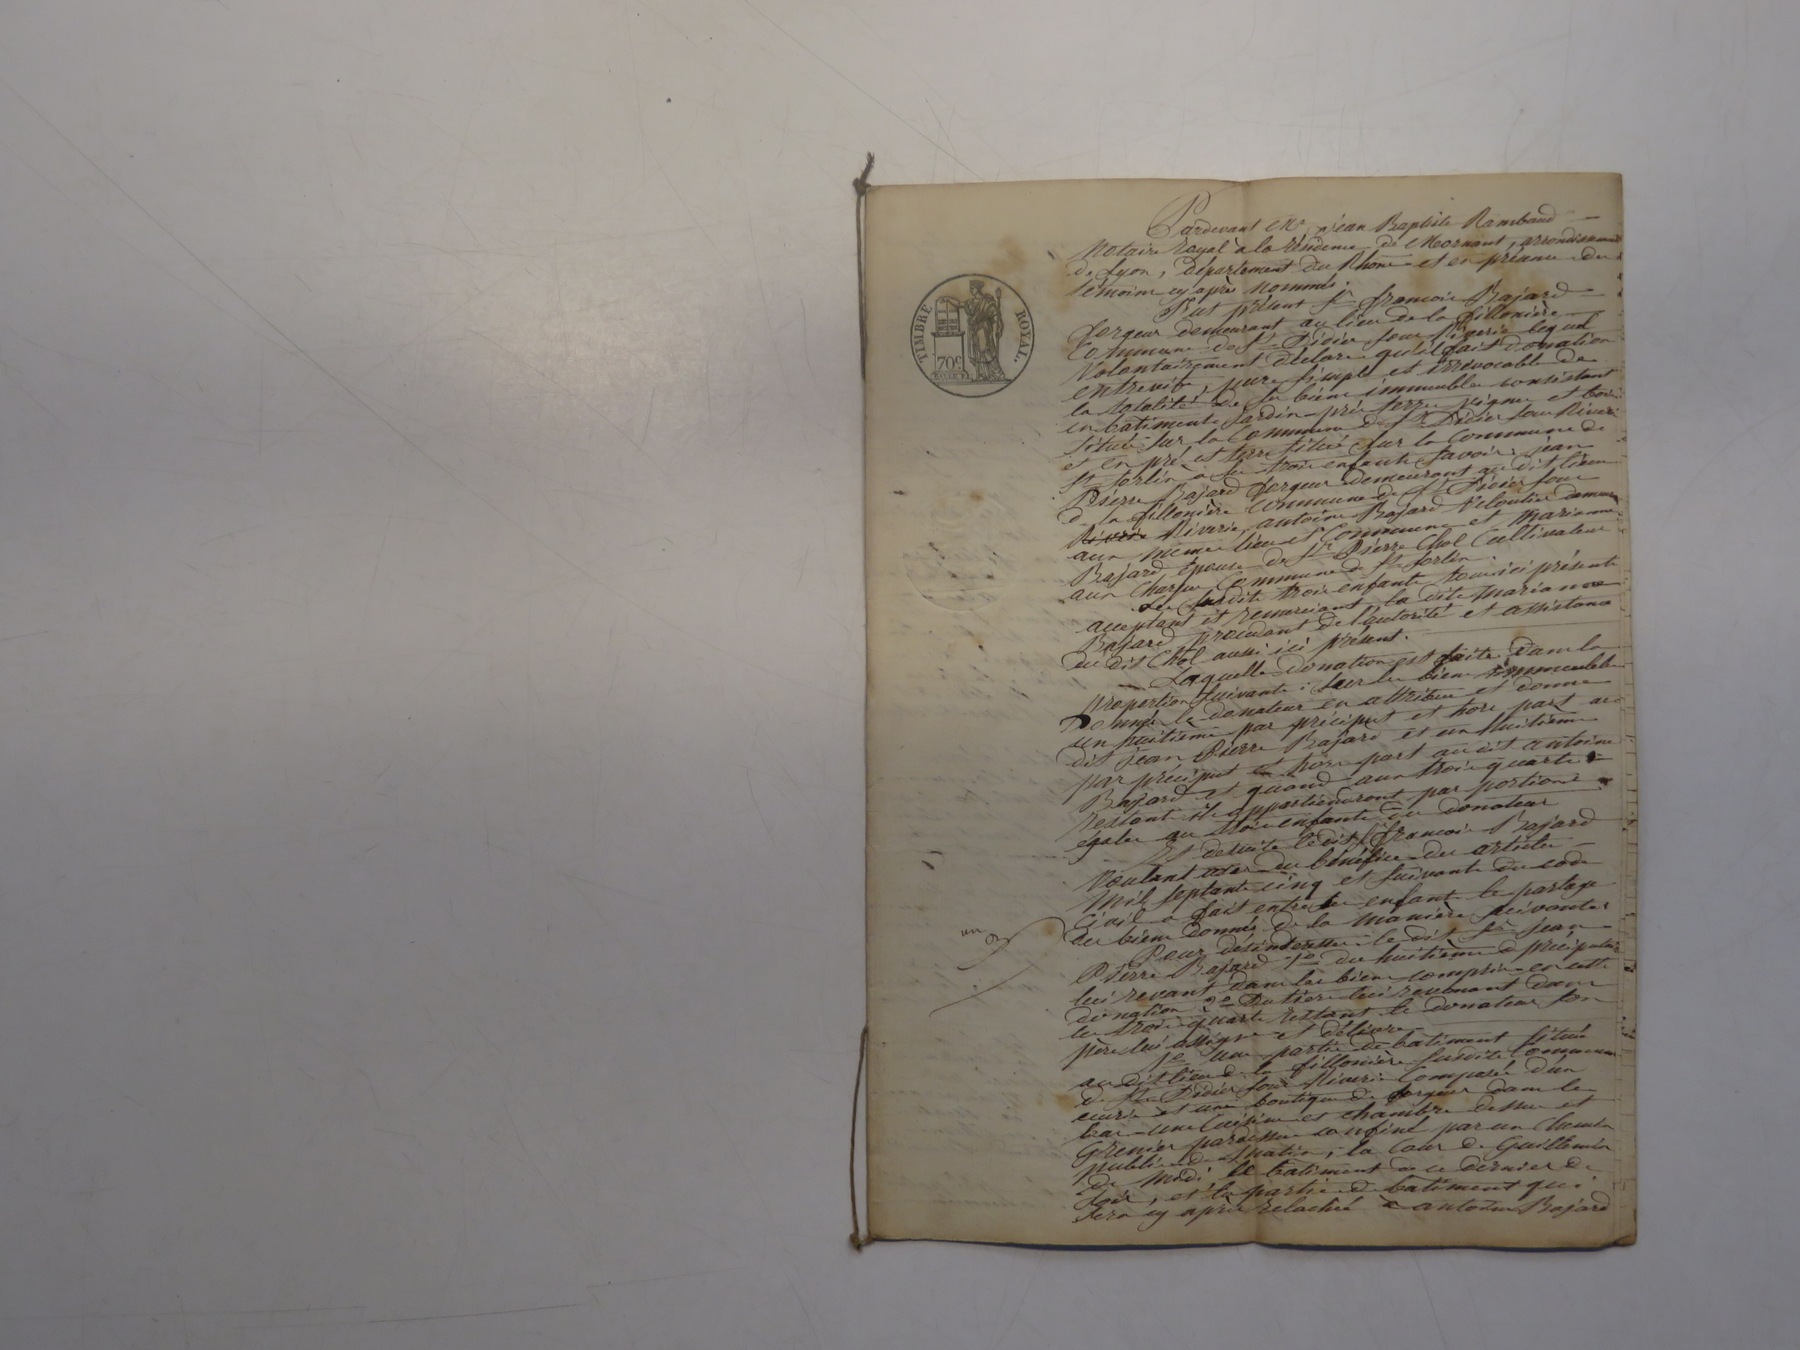 TIMBRE ROYAL
70c
Pardevant Me jean Baptiste Rambaud
Notaire royal à la résidence de Mornant, arrondissement
de Lyon, département du Rhône et en présence des
témoins cy après nommés.
Fut présent sr françois Bajard
forgeur demeurant au lieu de la fillonière
Commune de St Didier sous Riverie lequel
Volontairement déclare qu'il fait donation
entrevifs, pure simple et irrévocable de
la totalité de ses biens immeubles consistant
en batiments jardin pré terre vignes et bois
situés sur la Commune de St Didier sous Riverie
et en pré et terre situés sur la Commune de
St Sorlin à ses trois enfants savoir : jean
Pierre Bajard forgeur demeurant au dit lieu
de la fillonière Commune de St Didier sous
Riverie, antoine Bajard Veloutier demeurant
aux même lieu et Commune et Marianne
Bajard épouse de Sr Pierre Chol Cultivateur
aux Commune de St Sorlin.
Les susdits trois enfants tous ici présents
acceptant et remerciant la dite Marianne
Bajard procédant de l'autorité et assistance
du dit Chol aussi ici présent.
Laquelle donation est faite dans la
proportion suivante : sur les biens immeubles
Donnés le donateur en attribue et donne
un huitième par préciput et hors part au
dit jean Pierre Bajard et un huitième
par préciput et hors part au dit antoine
Bajard et quand aux trois quarts
restant ils appartiendront par portions
égales aux trois enfants du donateur
Et de suite le dit sr françois Bajard
Voulant user du bénéfice des articles
mil septante cinq et suivants du code
Civil a fait entre ses enfants le partage
des biens donnés de la manière suivante
Pour désintéresser le dit sr jean
Pierre Bajard 1o du huitième préciputaire
lui revenant dans les biens compris en cette
donation 2o du tiers lui revenant dans
les trois quarts restant le donateur son
père lui assigne et délivre
1o Une partie de batiment situé
au dit lieu de la fillonière susdite Commune
de St Didier sous Riverie Composée d'un
écurie et une boutique de forgeur dans le
bas une Cuisine et chambre dessus et
Grenier pardessus confiné par un chemin
public de matin, la Cour de Guillemin
de Midi le batiment de ce dernier de
soir, et la partie de batiment qui
sera cy après relachée à antoine Bajard